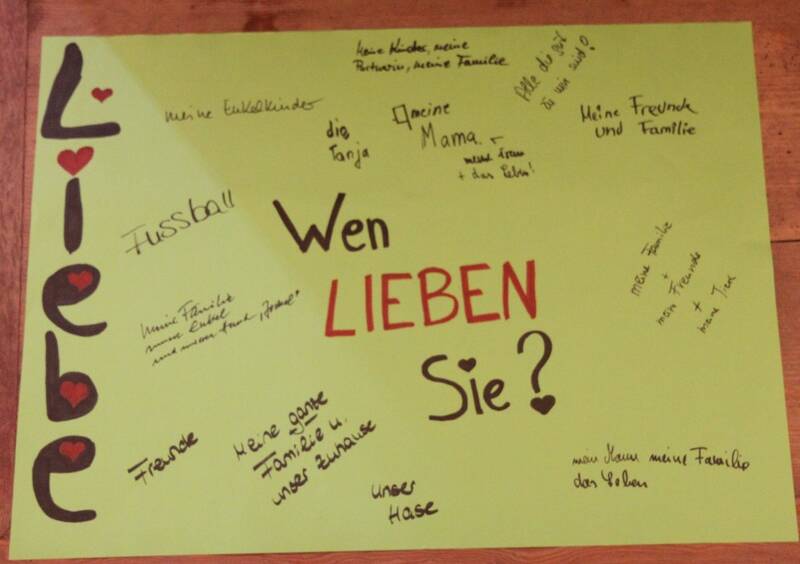 Liebe
keine Kinder, meine
Partnerin, meine Familie
Alle die gut
zu mir sind!
meine Enkelkinder
die
Tanja
meine
Mama.
+ das Leben!
Meine Freunde
und Familie
Fussball
Wen
LIEBEN
Sie?
meine Familie
+
mein Freunde
+
meine
Meine Familie
meine Enkel
und unseren Hund
Freunde
Meine ganze
Familie u.
unser Zuhause
unser
Hase
mein Mann meine Familie
das Leben